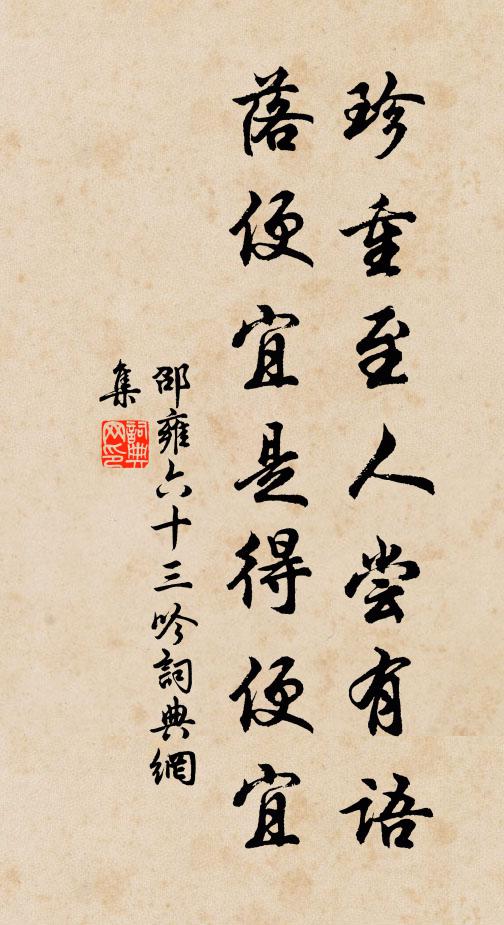 珍重至人尝有语
落便宜是得便宜
邵雍六十三吟詞典網
集
詞典网印